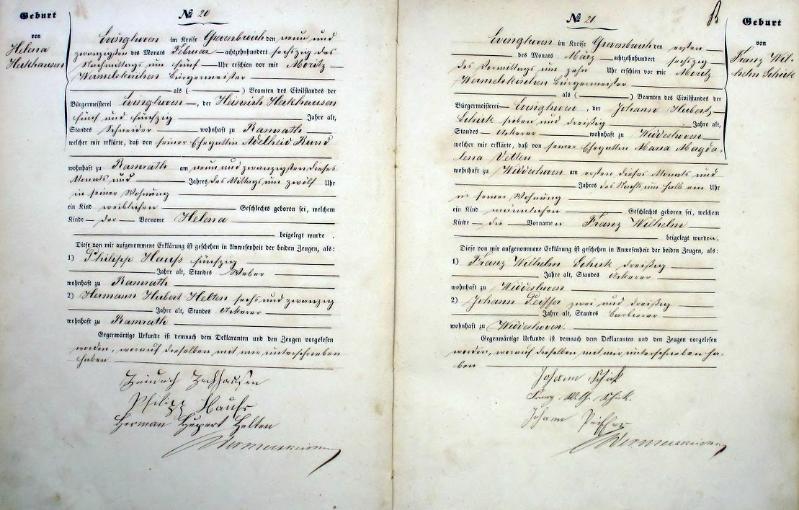 Geburt
von
Helena
Heckhausen
№ 20
Evinghoven im Kreise Grevenbroich den neun und
zwanzigsten des Monats Februar achtzehnhundert sechszig des
Nachmittags um fünf Uhr erschien vor mir Moritz
Wermelskirchen Bürgermeister
als ( ) Beamten des Civilstandes der
Bürgermeisterei Evinghoven, der Heinrich Heckhausen
fünf und fünfzig Jahre alt,
Standes Schneider wohnhaft zu Ramrath
welcher mir erklärte, daß von seiner Ehegattin Adelheid
wohnhaft zu Ramrath am neun und zwanzigsten dieses
Monats und Jahres des Mittags um zwölf Uhr
in seiner Wohnung
ein Kind weiblichen Geschlechts geboren sei, welchem
Kinde der Vorname Helena
beigelegt wurde.
Diese von mir aufgenommene Erklärung ist geschehen in Anwesenheit der beiden Zeugen, als:
1) Philipp fünfzig
Jahre alt, Standes Weber
wohnhaft zu Ramrath
2) Hermann Hubert Helten sechs und zwanzig
Jahre alt, Standes Ackerer
wohnhaft zu Ramrath
Gegenwärtige Urkunde ist demnach dem Deklaranten und den Zeugen vorgelesen
worden, worauf dieselben mit mir unterschrieben
haben
Heinrich Heckhausen
Philipp
Herman Hupert Helten
Wermelskirchen
№ 21
Geburt
von
Franz Wil-
helm Schick
Evinghoven im Kreise Grevenbroich den ersten
des Monats März achtzehnhundert sechszig
des Vormittags um zehn Uhr erschien vor mir Moritz
Wermelskirchen Bürgermeister
als ( ) Beamten des Civilstandes der
Bürgermeisterei Evinghoven, der Johann Hubert
Schick sieben und dreißig Jahre alt,
Standes Ackerer wohnhaft zu Widdeshoven
welcher mir erklärte, daß von seiner Ehegattin Maria Magda-
lena
wohnhaft zu Widdeshoven am ersten dieses Monats und
Jahres des Nachts um halb ein Uhr
in seiner Wohnung
ein Kind männlichen Geschlechts geboren sei, welchem
Kinde die Vornamen Franz Wilhelm
beigelegt wurden.
Diese von mir aufgenommene Erklärung ist geschehen in Anwesenheit der beiden Zeugen, als:
1) Franz Wilhelm Schick dreißig
Jahre alt, Standes Ackerer
wohnhaft zu Widdeshoven
2) Johann zwei und dreißig
Jahre alt, Standes Barbierer
wohnhaft zu Widdeshoven.
Gegenwärtige Urkunde ist demnach dem Deklaranten und den Zeugen vorgelesen
worden, worauf dieselben mit mir unterschrieben ha-
ben
Johann Schick
Franz Wilh. Schick
Johann
Wermelskirchen